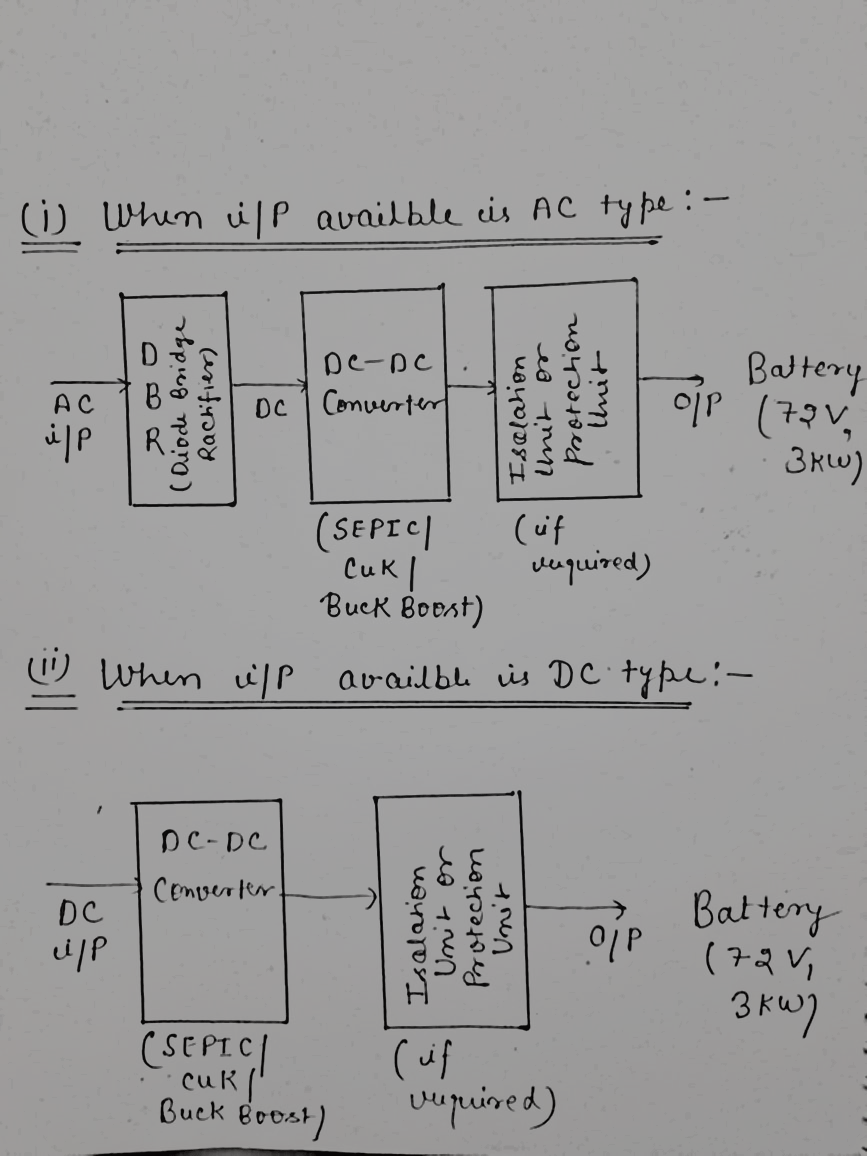 (i) When i/P availble is AC type:-
AC
i/P
D
B
R
(Diode Bridge
Ractifier)
DC
DC-DC
Converter
(SEPIC/
Cuk/
Buck Boost)
Isolation
Unit or
Protection
Unit
(if
required)
O/P
Battery
(72V,
3KW)
(ii) When i/P availble is DC type:-
DC
i/P
DC-DC
Converter
(SEPIC/
Cuk/
Buck Boost)
Isolation
Unit or
Protection
Unit
(if
required)
O/P
Battery
(72V,
3KW)